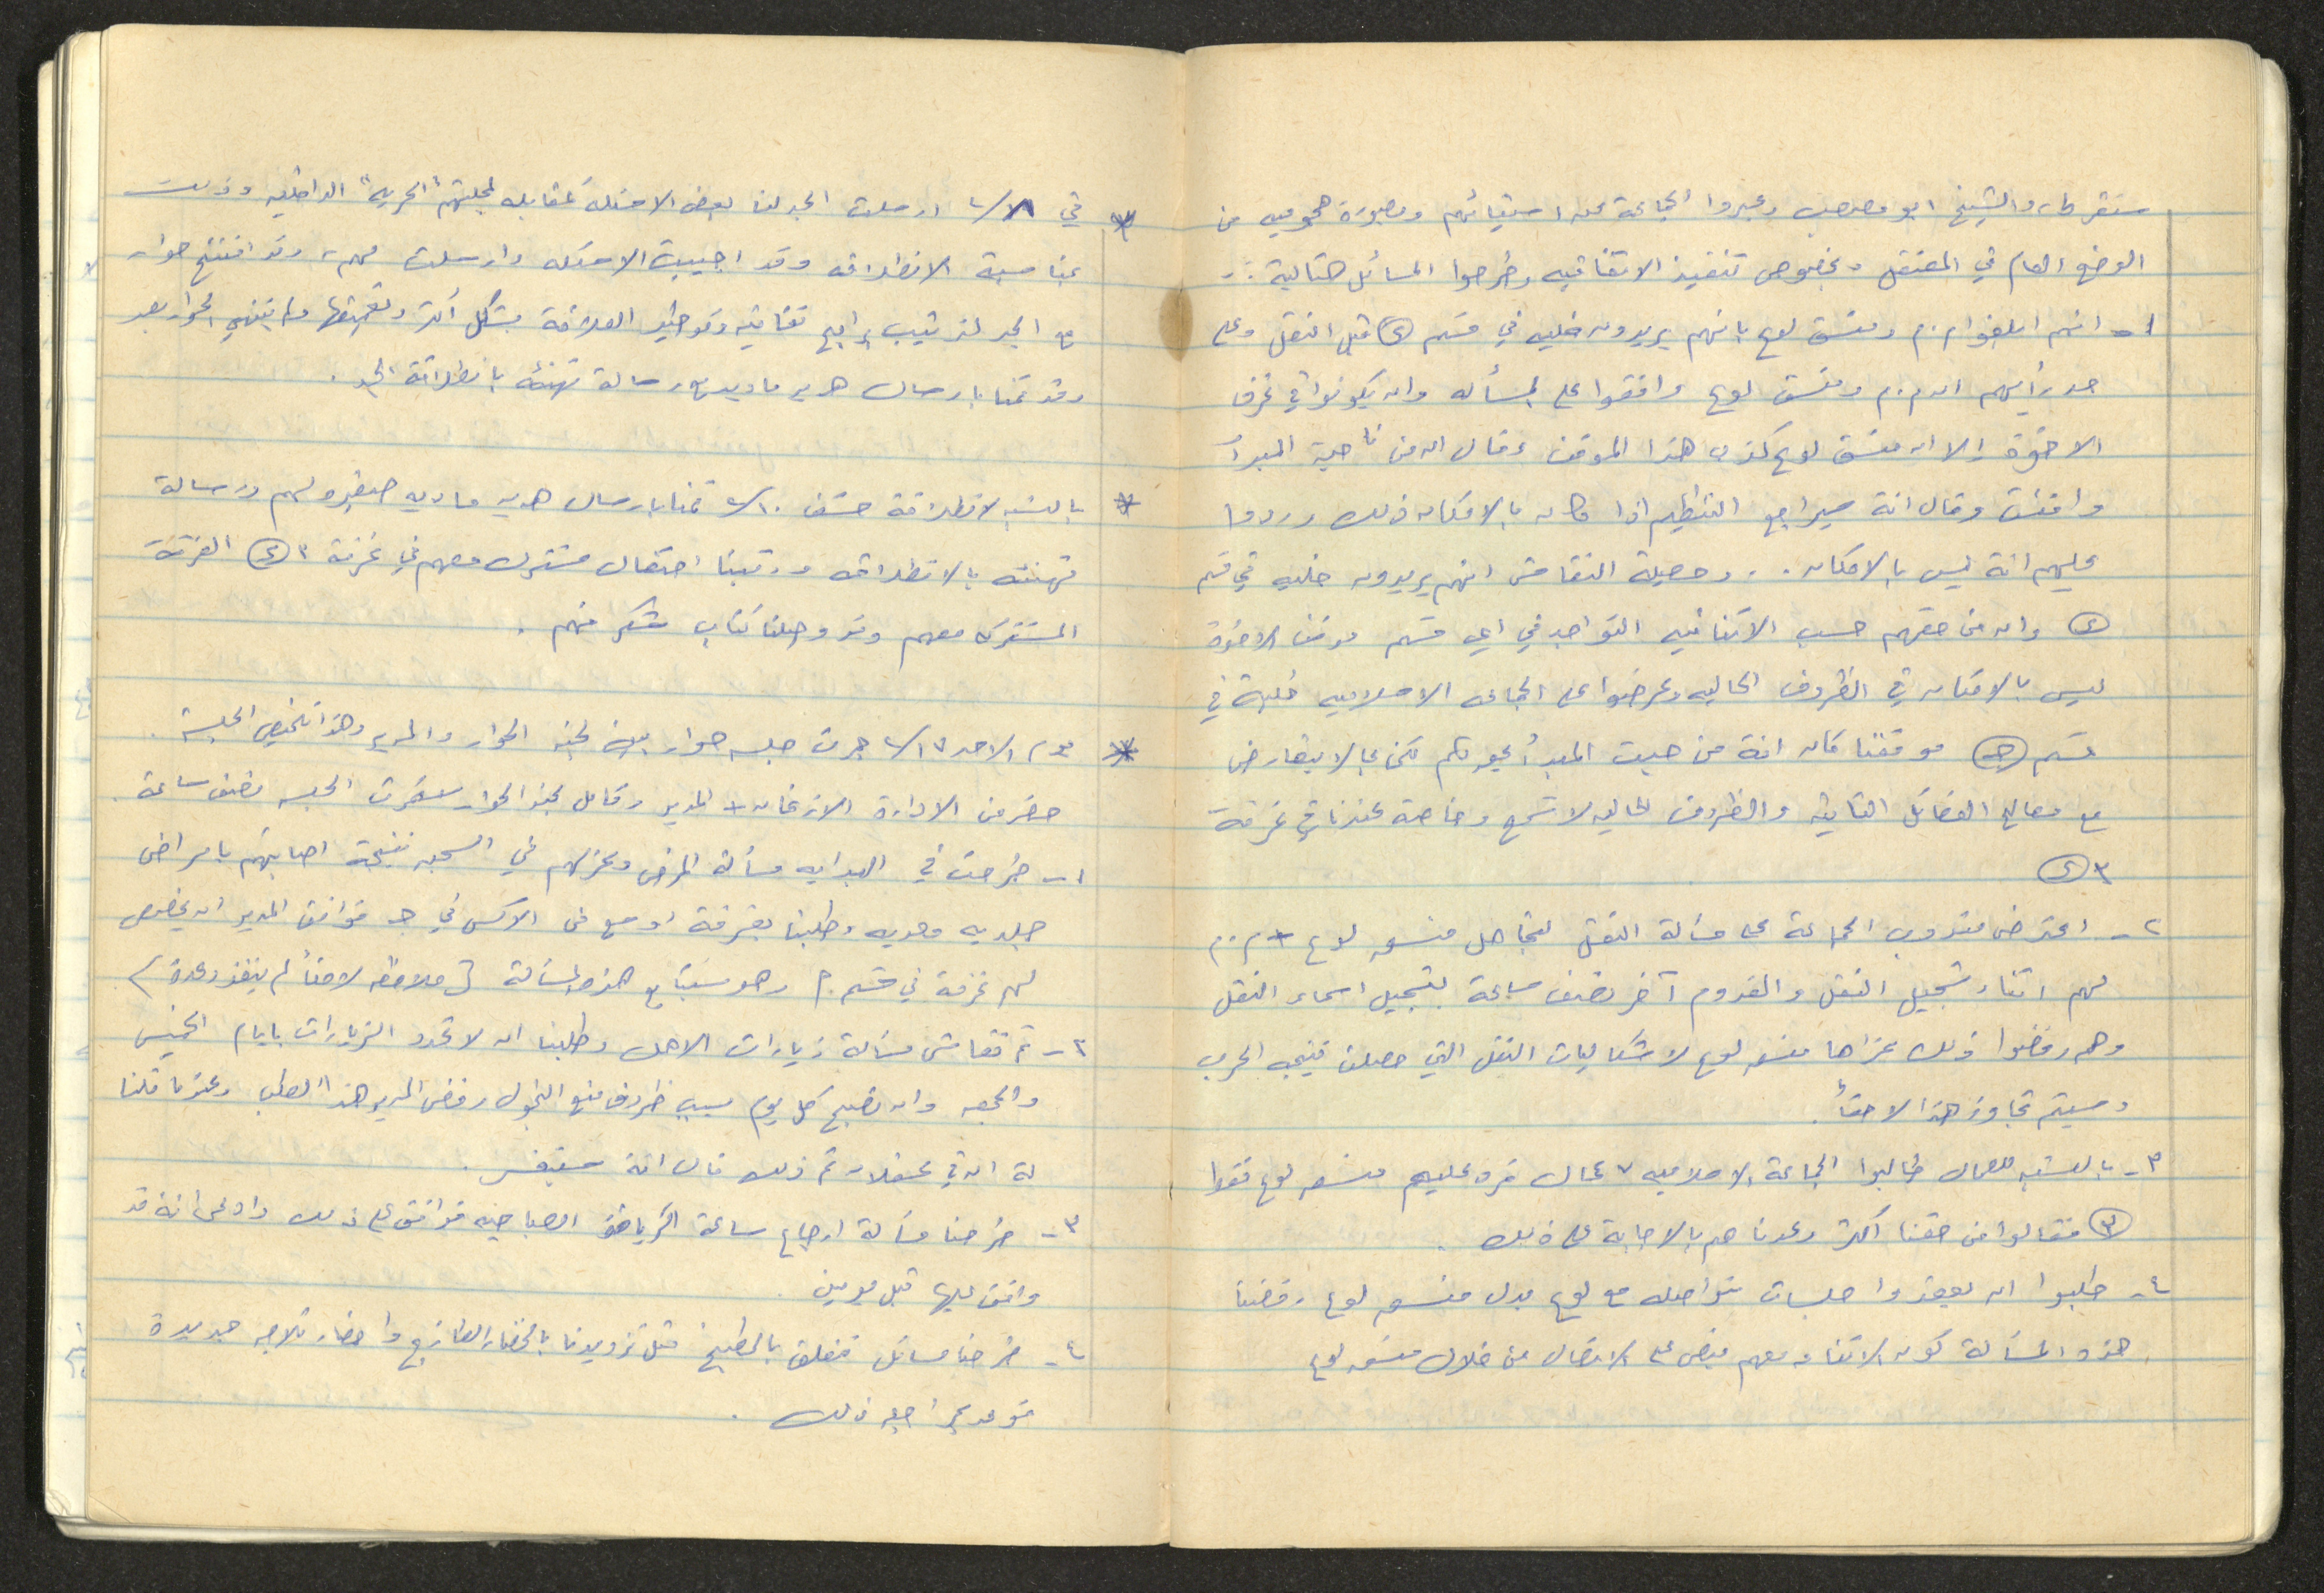 سنقرط، والشيخ ابو مصعب وعبروا الجماعة عن استيائهم وبصورة هجومية من
الوضع العام في المعتقل وبخصوص تنفيذ الاتفاقيه وطرحوا المسائل التالية :-
١- انهم ابلغوا م.م ومنسق لوع بانهم يريدون خليه في قسم (ى) قبل النقل وعلى
حد رأيهم ان م.م ومنسق لوع وافقوا على المسأله وان يكونوا في غرف
الاخوة إلا ان منسق لوع كذب هذا الموقف وقال انه من ناحية المبدأ
وافقت وقال انه سيراجع التنظيم اذا كان بالامكان ذلك وردوا
عليهم انه ليس بالامكان .. وحصيلة النقاش انهم يريدون خليه في قسم
(ى) وانه من حقهم حسب الاتفاقيه التواجد في اي قسم موقف الاخوة
ليس بالامكان في الظروف الحاليه وعرضوا على الجماعه الاسلاميه خلية في
قسم (جـ) موقفنا كان انه من حيث المبدأ يحق لكم لكن بما لا يتعارض
مع مصالح الفصائل الثانيه والظروف الحاليه لا تسمح وخاصة عندنا في غرفة
٣ (ى)
٢- اعترض مندوب الجماعة على مسألة النقل لتجاهل منسق لوع + م.م
لهم اثناء تسجيل النقل والقدوم آخر نصف ساعة لتسجيل اسماء النقل
وهم رفضوا ذلك عزاها منسق لوع لاشكاليات النقل التي حصلت نتيجه الحرب
وسيتم تجاوز هذا لاحقاً.
٣- بالنسبه للعمال طالبوا الجماعة الاسلاميه ٧ عمال فرد عليهم منسق لوع فقط
(٣) فقالوا من حقنا اكثر وعدناهم بالاجابة على ذلك .
٤- طلبوا ان يعقدوا جلسات متواصله مع لوع بدل منسق لوع رفضنا
هذه المسألة كون الاتفاق معهم ينص على الاتصال من خلال منسق لوع
* في ٨/١ ارسلت الجبد لنا بعض الاسئله لمقابله لمجلتهم "الحريه" الداخليه وذلك
بمناسبة الانطلاقه وقد اجيبت الاسئله وارسلت لهم، وقد افتتح حوار
مع الجبد لترتيب برامج ثقافيه وتوطيد العلاقة بشكل أكثر وتعميقها ولم ينتهي الحوار بعد
وقد قمنا بارسال هديه ماديه مع رسالة تهنئه بانطلاقة الجبد .
* بالنسبه لانطلاقة حشف ٢/١٠ قمنا بارسال هديه ماديه صغيره لهم ورسالة
تهنئه بالانطلاقه ورتبنا احتفال مشترك معهم في غرفة ٣ (ى) الغرفة
المشتركه معهم وقد وصلنا كتاب شكر منهم .
* يوم الاحد ١٧/ جرت جلسه حوار بين لجنه الحوار والمدير وهذا تلخيص الجلسة .
حضر من الادارة الازغان + المدير وكامل لجنه الحوار استمرت الجلسه نصف ساعة .
١- طرحت في البدايه مسألة المرضى وعزلهم في السجن نتيجة اصابتهم بامراض
جلديه معديه وطلبنا بغرفة اوسع من الاكس في جـ فوافق المدير ان يخصص
لهم غرفة في قسم م وهو سيتابع هذه المسألة ( ملاحظه لاحقاً لم ينفذ وعده )
٢- تم نقاش مسألة زيارات الاهل وطلبنا ان لا تحدد الزيارات بايام الخميس
والجمعه وان تصبح كل يوم بسبب ظروف منع التجول رفض المدير هذا الطلب وعندما قلنا
له ان في عسقلان تم ذلك قال انه سيفحص .
٣- طرحنا مسألة ارجاع ساعة الرياضه الصباحيه فوافق على ذلك وادعى انه قد
وافق عليها قبل يومين .
٤- طرحنا مسائل تتعلق بالمطبخ مثل تزويدنا بالخضار الطازج واحضار ثلاجه جديدة
فوعد بمراجعه ذلك .